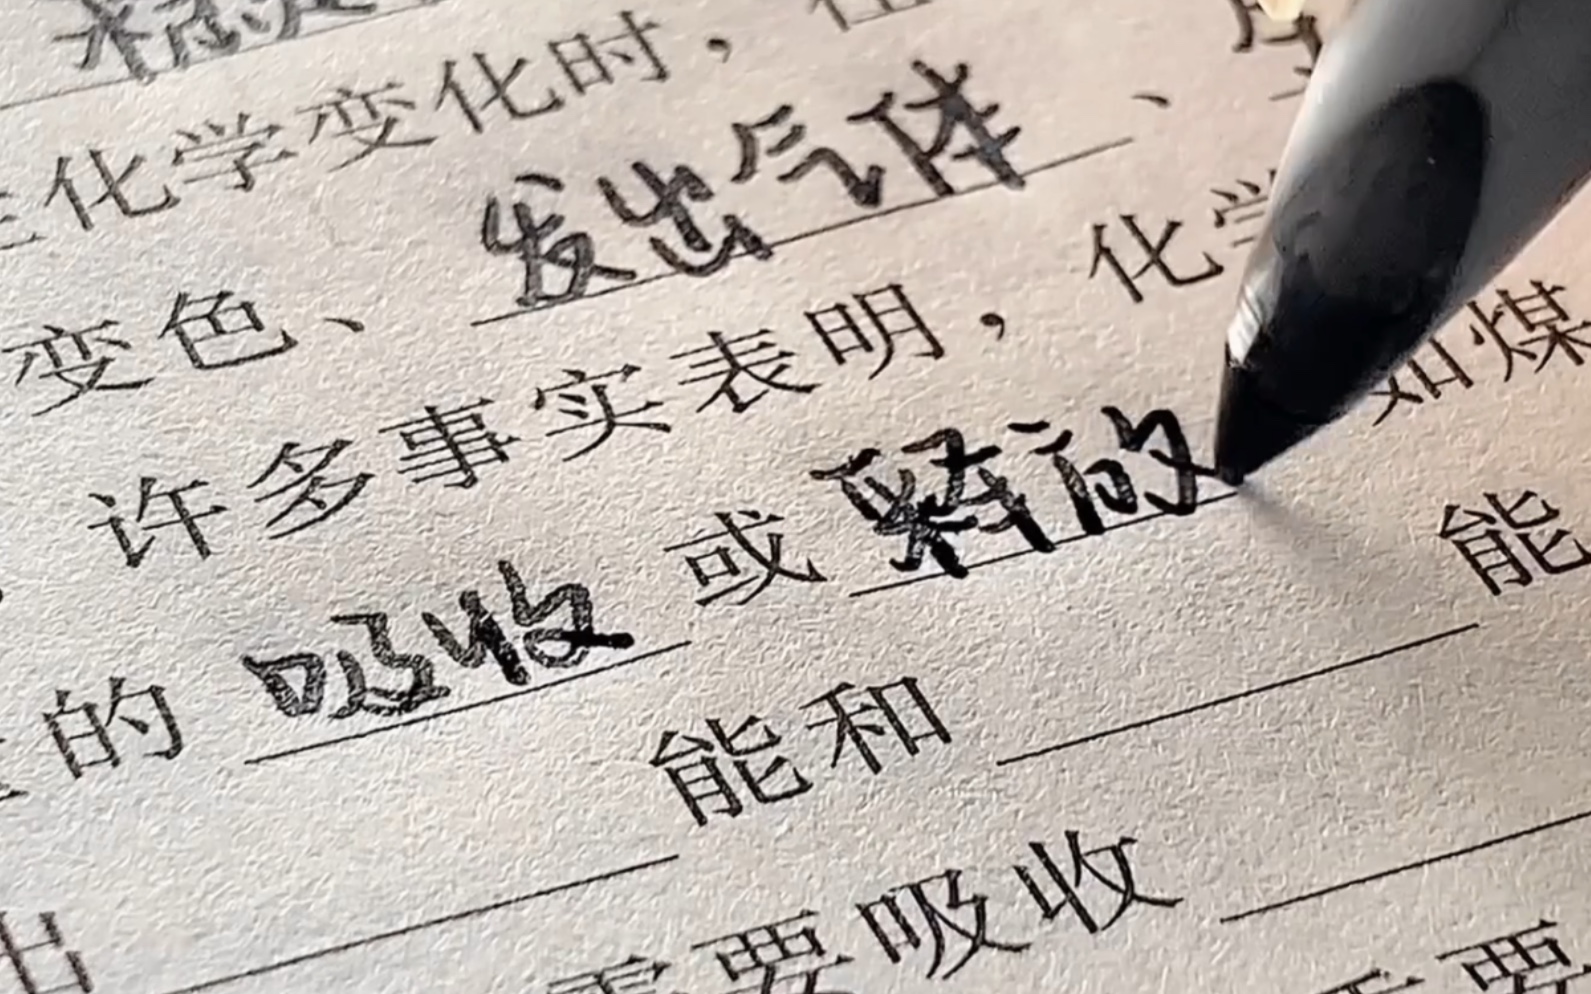 化学变化时，
变色、发出气体、
许多事实表明，化学
的吸收或释放 如煤
能和 能
出 需要吸收 需要